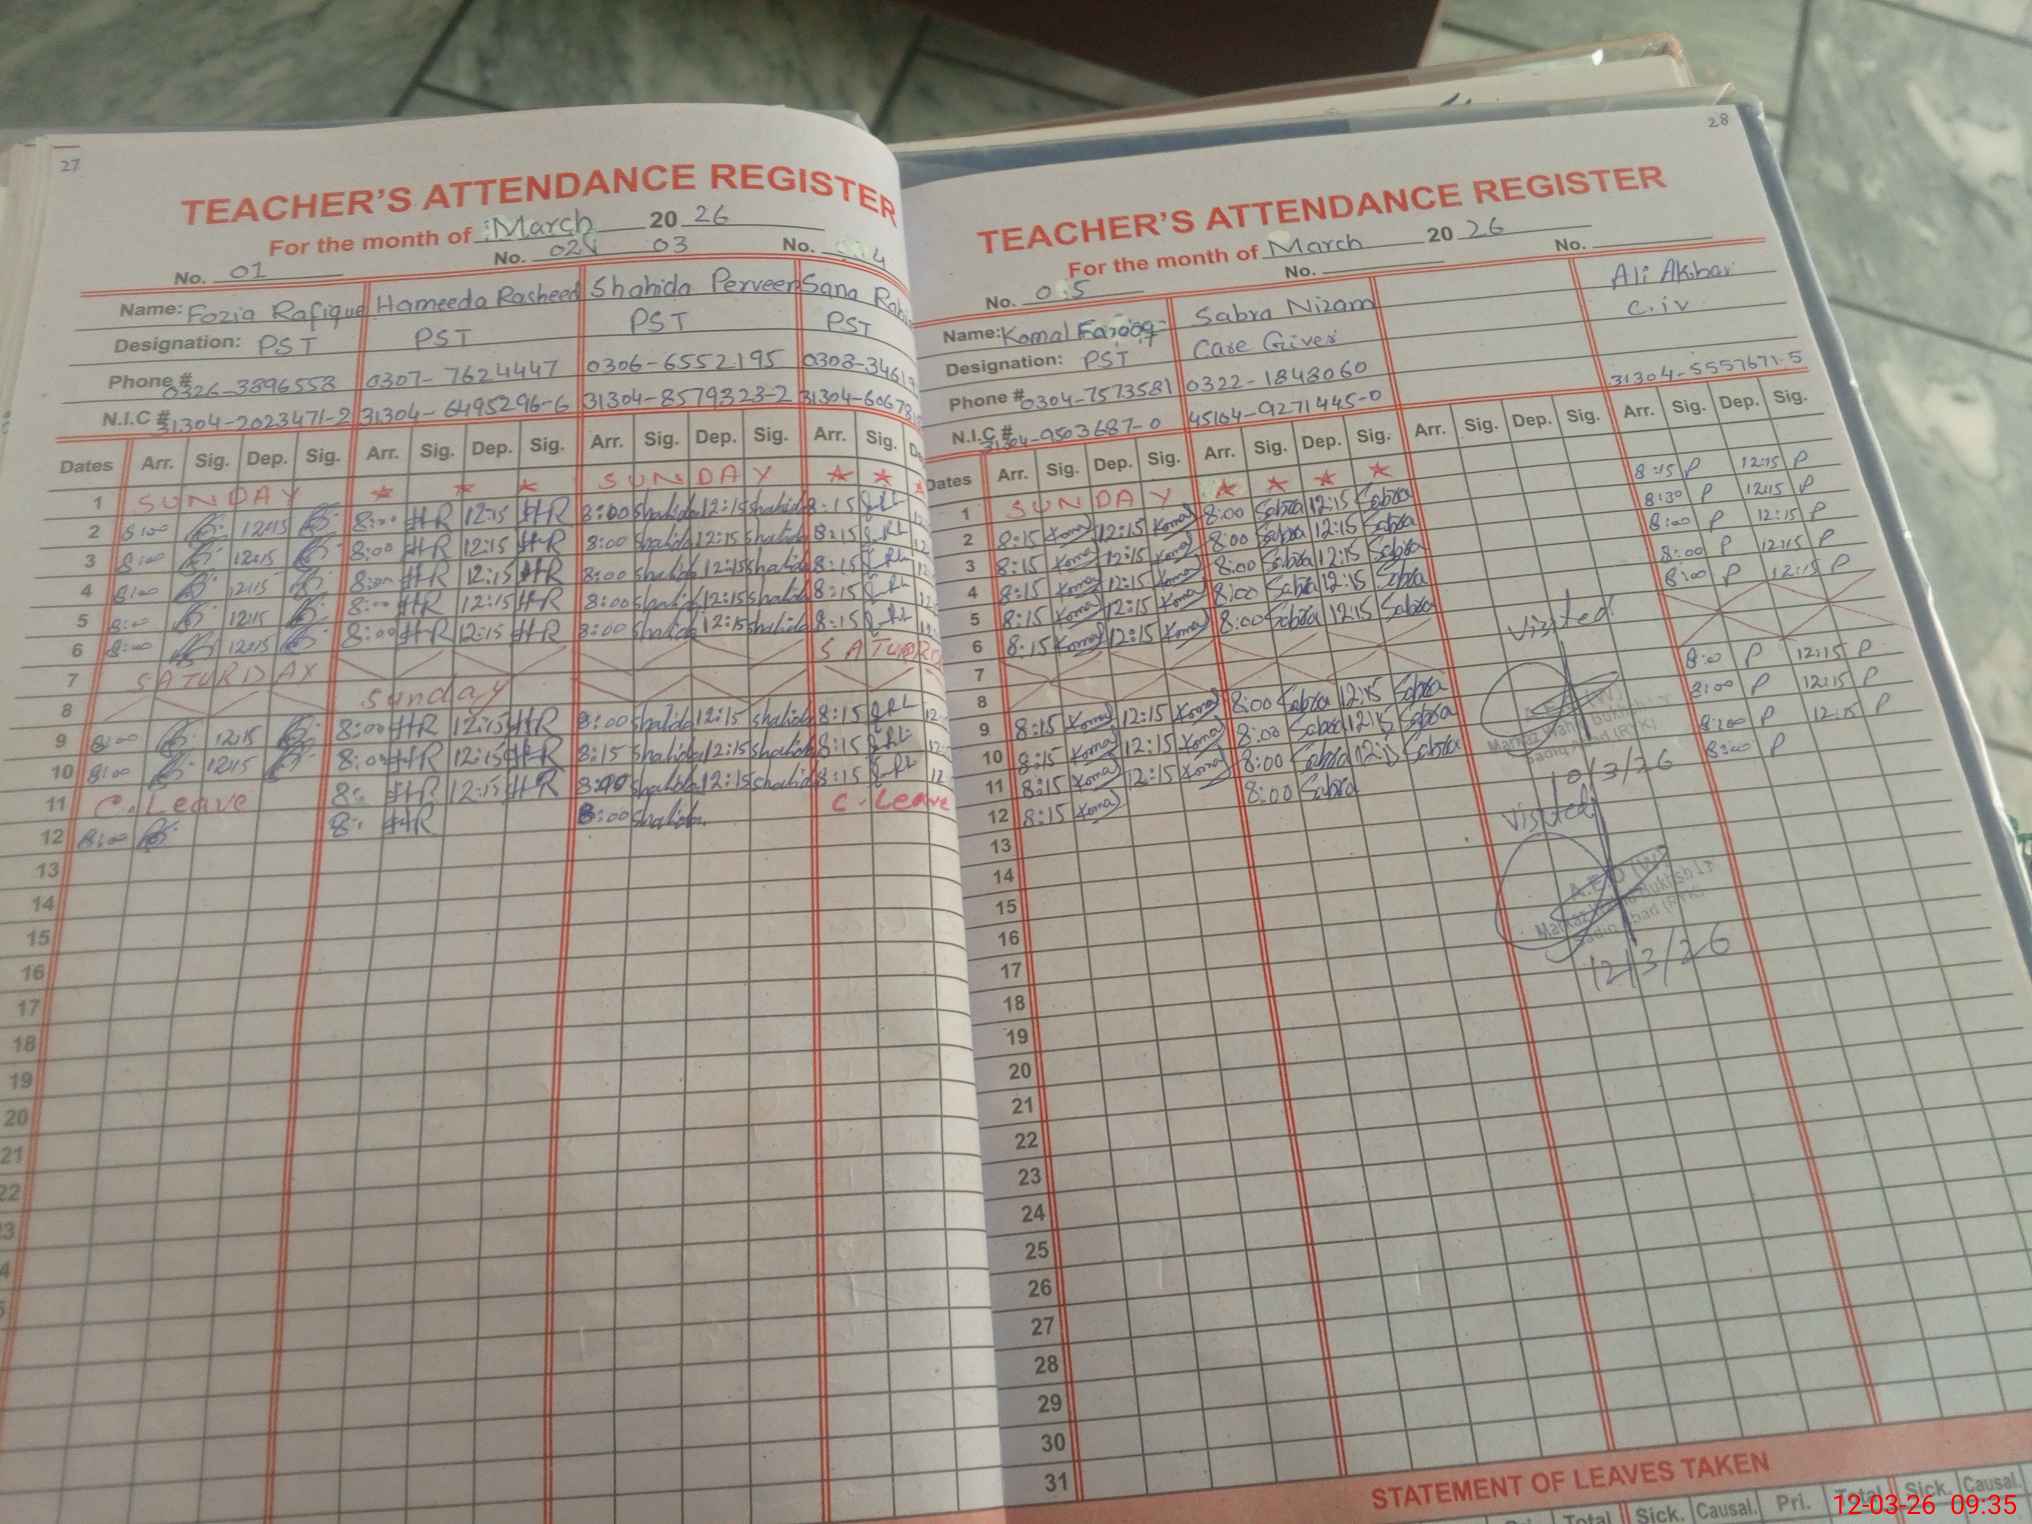 27
TEACHER'S ATTENDANCE REGISTER
For the month of March 20 26
No. 01 No. 02 03 No. 4
Name: Fozia Rafique Hameeda Rasheed Shahida Perveen Sana
Designation: PST PST PST PST
Phone # 0326-3896558 0307-7624447 0306-6552195 0303-3461
N.I.C # 31304-2023471-2 31304-6495296-6 31304-8579323-2 31304-6067
Dates Arr. Sig. Dep. Sig. Arr. Sig. Dep. Sig. Arr. Sig. Dep. Sig. Arr. Sig.
1 SUNDAY ★ ★ ★ SUNDAY ★ ★ ★
2 8:00 12:15 8:00 HR 12:15 HR 8:00 Shahida 12:15 Shahida 8:15
3 8:00 12:15 8:00 HR 12:15 HR 8:00 Shahida 12:15 Shahida 8:15
4 8:00 12:15 8:00 HR 12:15 HR 8:00 Shahida 12:15 Shahida 8:15
5 8:00 12:15 8:00 HR 12:15 HR 8:00 Shahida 12:15 Shahida 8:15
6 8:00 12:15 8:00 HR 12:15 HR 8:00 Shahida 12:15 Shahida 8:15
7 SATURDAY SATURD
8 Sunday
9 8:00 12:15 8:00 HR 12:15 HR 8:00 Shahida 12:15 Shahida 8:15
10 8:00 12:15 8:00 HR 12:15 HR 8:15 Shahida 12:15 Shahida 8:15
11 C. Leave 8: HR 12:15 HR 8:00 Shahida 12:15 Shahida 8:15
12 8:00 8: HR 8:00 Shahida C. Leave
13
14
15
16
17
18
19
20
21
22
23
28
TEACHER'S ATTENDANCE REGISTER
For the month of March 20 26
No. 05 No. No.
Name: Komal Farooq Sabra Nizam Ali Akbar
Designation: PST Care Giver C.iv
Phone # 0304-7573581 0322-1848060
N.I.C # 31304-9503687-0 45104-9271445-0 31304-5557671-5
Dates Arr. Sig. Dep. Sig. Arr. Sig. Dep. Sig. Arr. Sig. Dep. Sig. Arr. Sig. Dep. Sig.
1 SUNDAY ★ ★ ★ ★
2 8:15 Komal 12:15 Komal 8:00 Sabra 12:15 Sabra 8:15 P 12:15 P
3 8:15 Komal 12:15 Komal 8:00 Sabra 12:15 Sabra 8:30 P 12:15 P
4 8:15 Komal 12:15 Komal 8:00 Sabra 12:15 Sabra 8:00 P 12:15 P
5 8:15 Komal 12:15 Komal 8:00 Sabra 12:15 Sabra 8:00 P 12:15 P
6 8:15 Komal 12:15 Komal 8:00 Sabra 12:15 Sabra 8:00 P 12:15 P
7
Visited
8
9 8:15 Komal 12:15 Komal 8:00 Sabra 12:15 Sabra 8:00 P 12:15 P
10 8:15 Komal 12:15 Komal 8:00 Sabra 12:15 Sabra 8:00 P 12:15 P
11 8:15 Komal 12:15 Komal 8:00 Sabra 12:15 Sabra 8:00 P 12:15 P
12 8:15 Komal 8:00 Sabra 8:00 P
10/3/26
Visited
13
14
A.E.O (W)
15
16
12/3/26
17
18
19
20
21
22
23
24
25
26
27
28
29
30
31
STATEMENT OF LEAVES TAKEN
Total Sick. Causal. Pri. Total Sick. Causal.
12-03-26 09:35